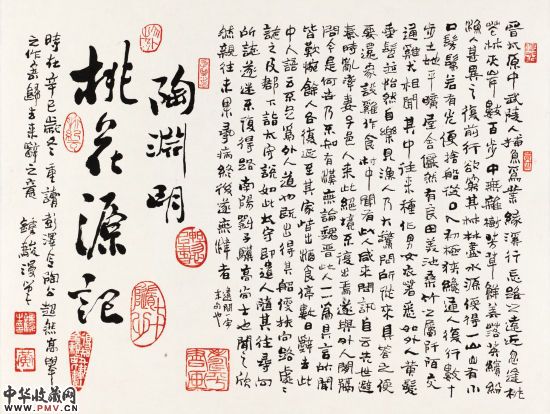 晉太原中武陵人捕魚為業緣溪行忘路之遠近忽逢桃
花林夾岸數百步中無雜樹芳草鮮美落英繽紛
漁人甚異之復前行欲窮其林林盡水源便得一山山有小
口髣髴若有光便捨船從口入初極狹纔通人復行數十
步土地平曠屋舍儼然有良田美池桑竹之屬阡陌交
通雞犬相聞其中往來種作男女衣著悉如外人黃髮
垂髫並怡然自樂見漁人乃大駭問所從來具答之便
要還家設雞作食村中聞有此人咸來問訊自云先世避
秦時亂率妻子邑人來此絕境不復出焉遂與外人間隔
問今是何世乃不知有漢無論魏晉此人一一為具言所聞
皆歎惋餘人各復延至其家皆出酒食停數日辭去此
中人語云不足為外人道也既出得其船便扶向路處處
誌之及郡下詣太守說如此太守即遣人隨其往尋向
所誌遂迷不復得路南陽劉子驥高尚士也聞之欣
然親往未果尋病終後遂無津者
陶淵明
桃花源記
時在辛巳歲冬重讀彭澤令陶公超然高舉
之作寄歸去來辭之意
中华收藏网
WWW.PMV.CN